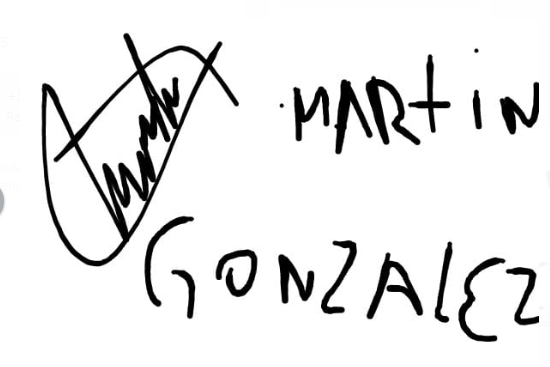 MARtiN
GONZALEZ